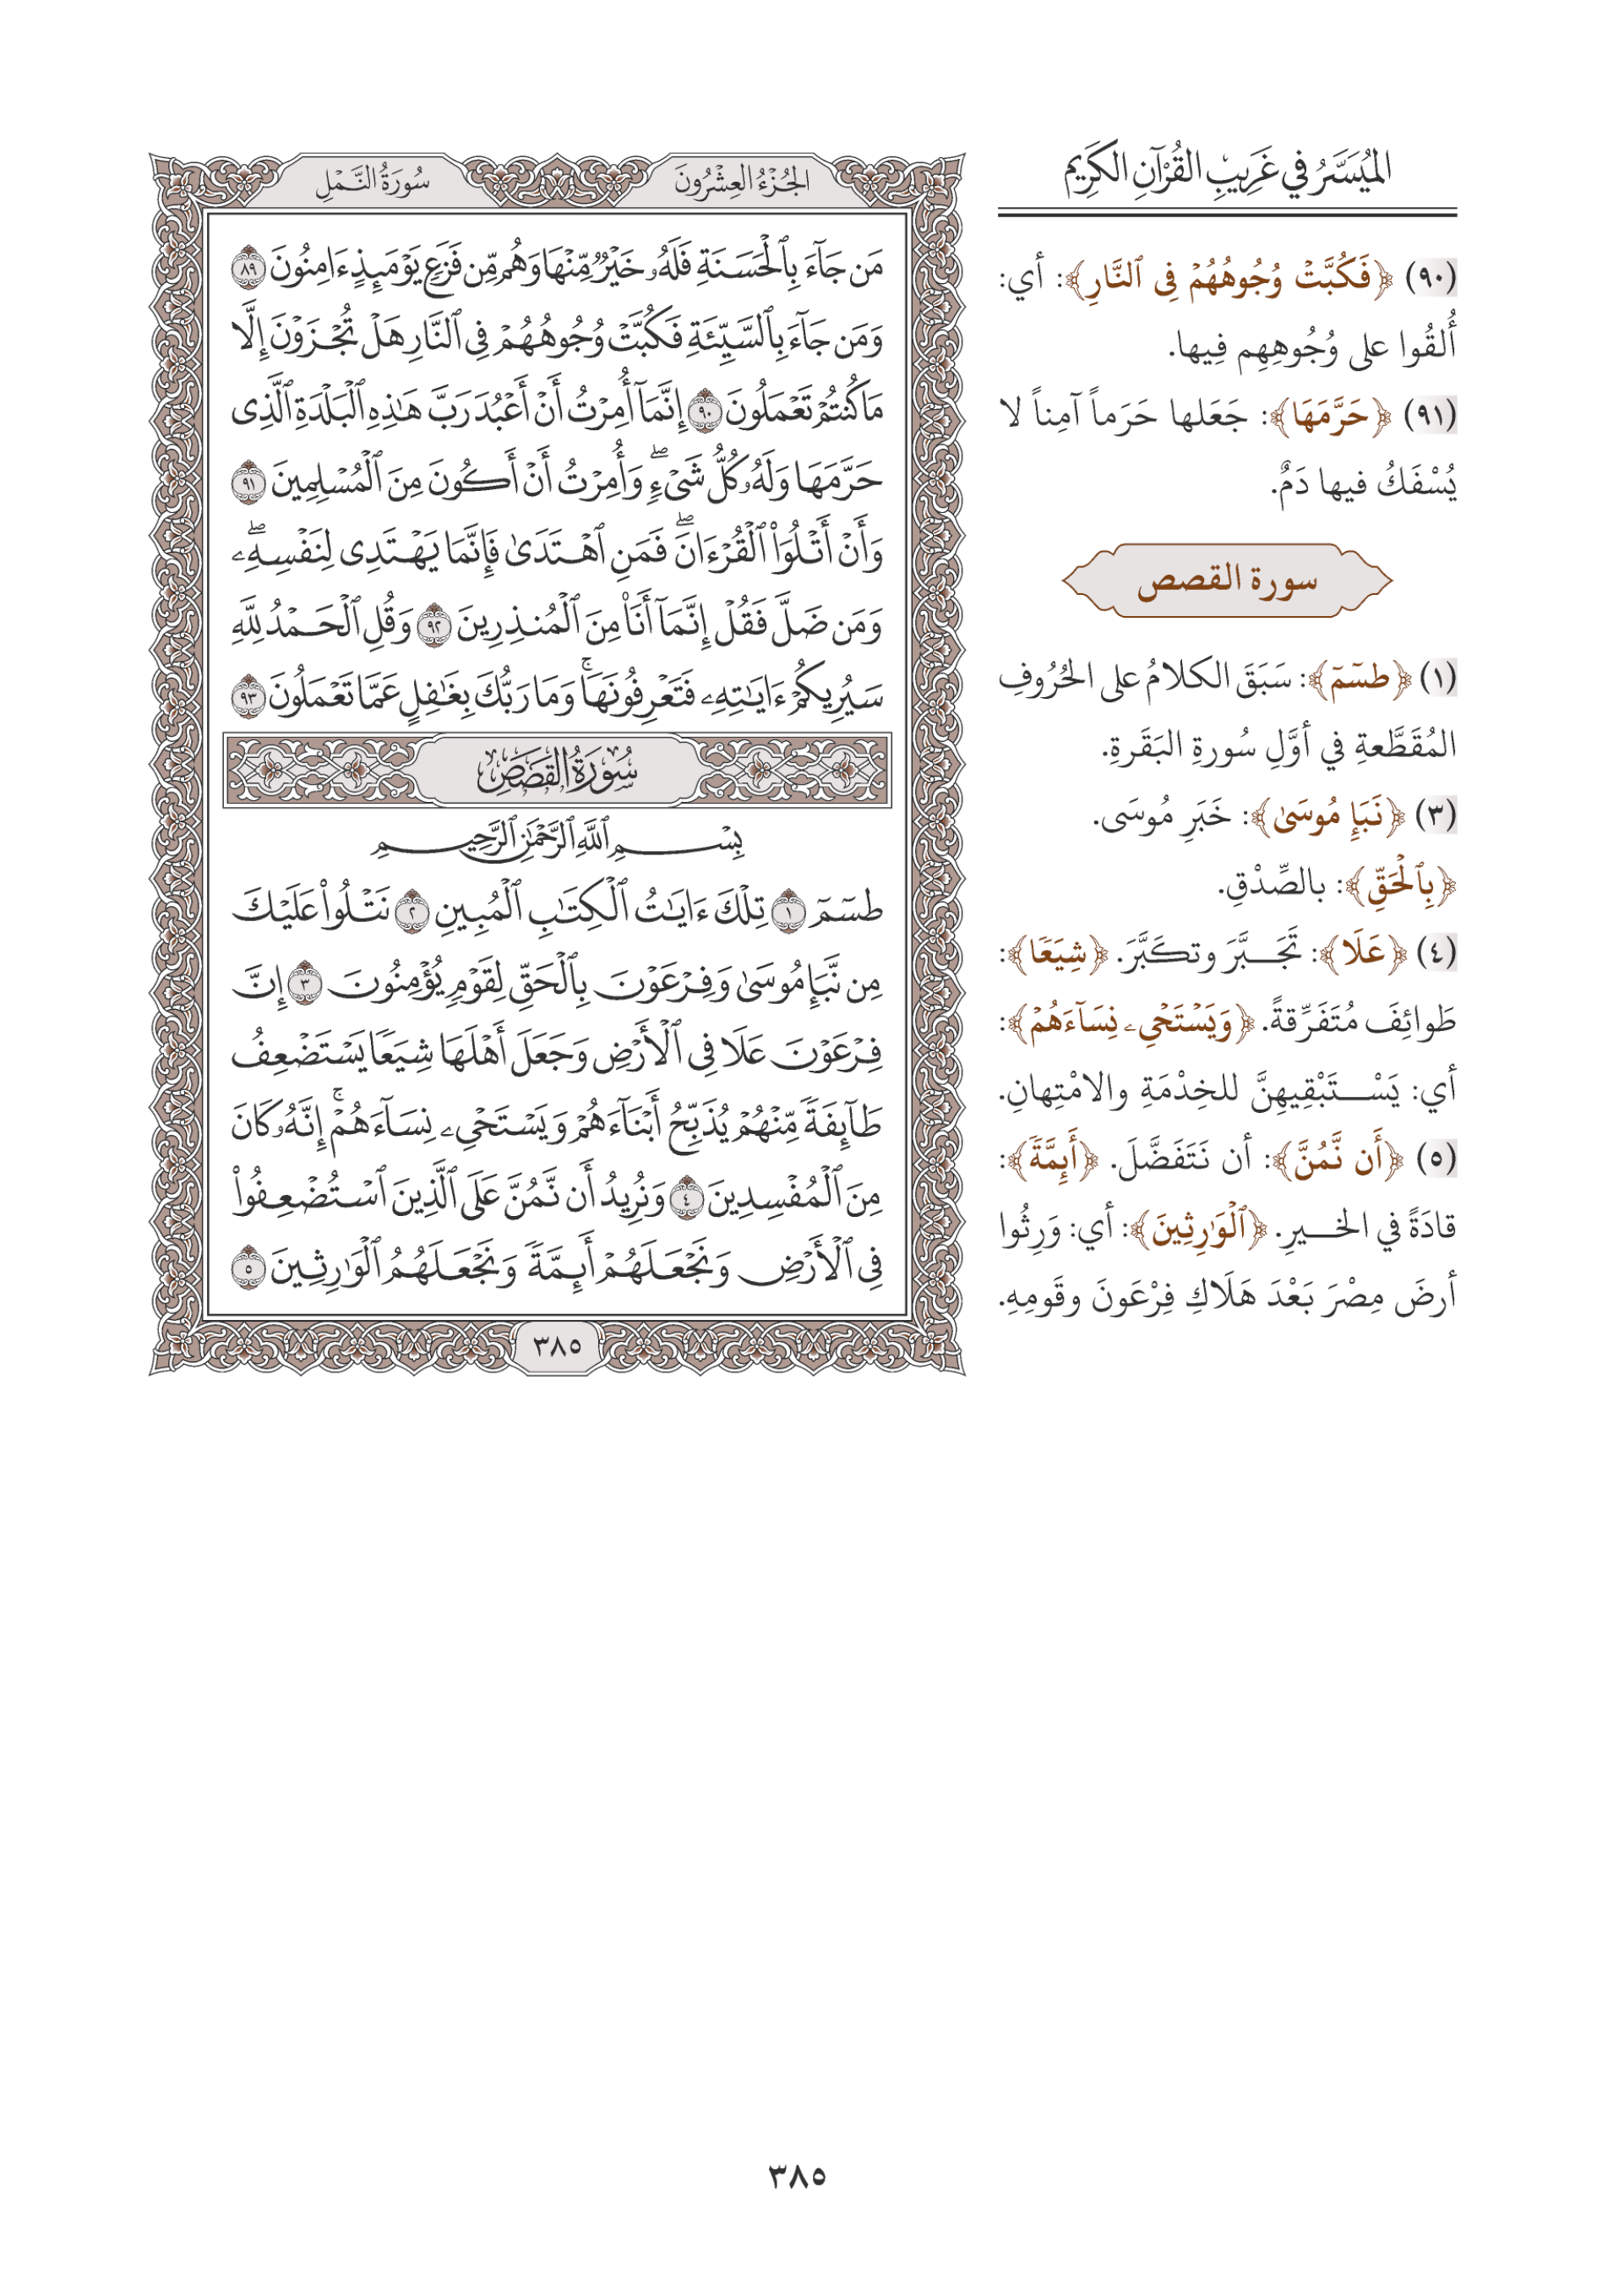 الميُسَّرُ في غَرِيبِ القُرْآنِ الكَرِيم
(٩٠) ﴿فَكُبَّتْ وُجُوهُهُمْ فِى ٱلنَّارِ﴾: أي:
أُلقُوا على وُجُوهِهِم فِيها.
(٩١) ﴿حَرَّمَهَا﴾: جَعَلها حَرَماً آمِناً لا
يُسْفَكُ فيها دَمٌ.
سورة القصص
(١) ﴿طسٓمٓ﴾: سَبَقَ الكلامُ على الحُرُوفِ
المُقَطَّعةِ في أوَّلِ سُورةِ البَقَرةِ.
(٣) ﴿نَبَإِ مُوسَىٰ﴾: خَبَرِ مُوسَى.
﴿بِٱلْحَقِّ﴾: بالصِّدْقِ.
(٤) ﴿عَلَا﴾: تَجَبَّرَ وتكَبَّرَ. ﴿شِيَعًا﴾:
طَوائِفَ مُتَفَرِّقةً. ﴿وَيَسْتَحْىِۦ نِسَآءَهُمْ﴾:
أي: يَسْتَبْقِيهِنَّ للخِدْمَةِ والامْتِهانِ.
(٥) ﴿أَن نَّمُنَّ﴾: أن نَتَفَضَّلَ. ﴿أَئِمَّةً﴾:
قادَةً في الخيرِ. ﴿ٱلْوَٰرِثِينَ﴾: أي: وَرِثُوا
أرضَ مِصْرَ بَعْدَ هَلَاكِ فِرْعَونَ وقَومِهِ.
الجُزْءُ العِشْرُونَ
سُورَةُ النَّمْلِ
مَن جَآءَ بِٱلْحَسَنَةِ فَلَهُۥ خَيْرٌ مِّنْهَا وَهُم مِّن فَزَعٍ يَوْمَئِذٍ ءَامِنُونَ ٨٩
وَمَن جَآءَ بِٱلسَّيِّئَةِ فَكُبَّتْ وُجُوهُهُمْ فِى ٱلنَّارِ هَلْ تُجْزَوْنَ إِلَّا
مَا كُنتُمْ تَعْمَلُونَ ٩٠ إِنَّمَآ أُمِرْتُ أَنْ أَعْبُدَ رَبَّ هَٰذِهِ ٱلْبَلْدَةِ ٱلَّذِى
حَرَّمَهَا وَلَهُۥ كُلُّ شَىْءٍۖ وَأُمِرْتُ أَنْ أَكُونَ مِنَ ٱلْمُسْلِمِينَ ٩١
وَأَنْ أَتْلُوَا۟ ٱلْقُرْءَانَۖ فَمَنِ ٱهْتَدَىٰ فَإِنَّمَا يَهْتَدِى لِنَفْسِهِۦۖ
وَمَن ضَلَّ فَقُلْ إِنَّمَآ أَنَا۠ مِنَ ٱلْمُنذِرِينَ ٩٢ وَقُلِ ٱلْحَمْدُ لِلَّهِ
سَيُرِيكُمْ ءَايَٰتِهِۦ فَتَعْرِفُونَهَاۚ وَمَا رَبُّكَ بِغَٰفِلٍ عَمَّا تَعْمَلُونَ ٩٣
سُورَةُ القَصَصِ
بِسْمِ ٱللَّهِ ٱلرَّحْمَٰنِ ٱلرَّحِيمِ
طسٓمٓ ١ تِلْكَ ءَايَٰتُ ٱلْكِتَٰبِ ٱلْمُبِينِ ٢ نَتْلُوا۟ عَلَيْكَ
مِن نَّبَإِ مُوسَىٰ وَفِرْعَوْنَ بِٱلْحَقِّ لِقَوْمٍ يُؤْمِنُونَ ٣ إِنَّ
فِرْعَوْنَ عَلَا فِى ٱلْأَرْضِ وَجَعَلَ أَهْلَهَا شِيَعًا يَسْتَضْعِفُ
طَآئِفَةً مِّنْهُمْ يُذَبِّحُ أَبْنَآءَهُمْ وَيَسْتَحْىِۦ نِسَآءَهُمْۚ إِنَّهُۥ كَانَ
مِنَ ٱلْمُفْسِدِينَ ٤ وَنُرِيدُ أَن نَّمُنَّ عَلَى ٱلَّذِينَ ٱسْتُضْعِفُوا۟
فِى ٱلْأَرْضِ وَنَجْعَلَهُمْ أَئِمَّةً وَنَجْعَلَهُمُ ٱلْوَٰرِثِينَ ٥
٣٨٥
٣٨٥